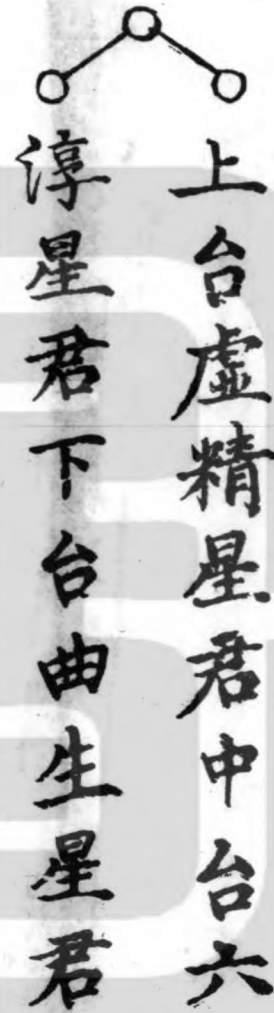 上台虛精星君中台六
淳星君下台曲生星君